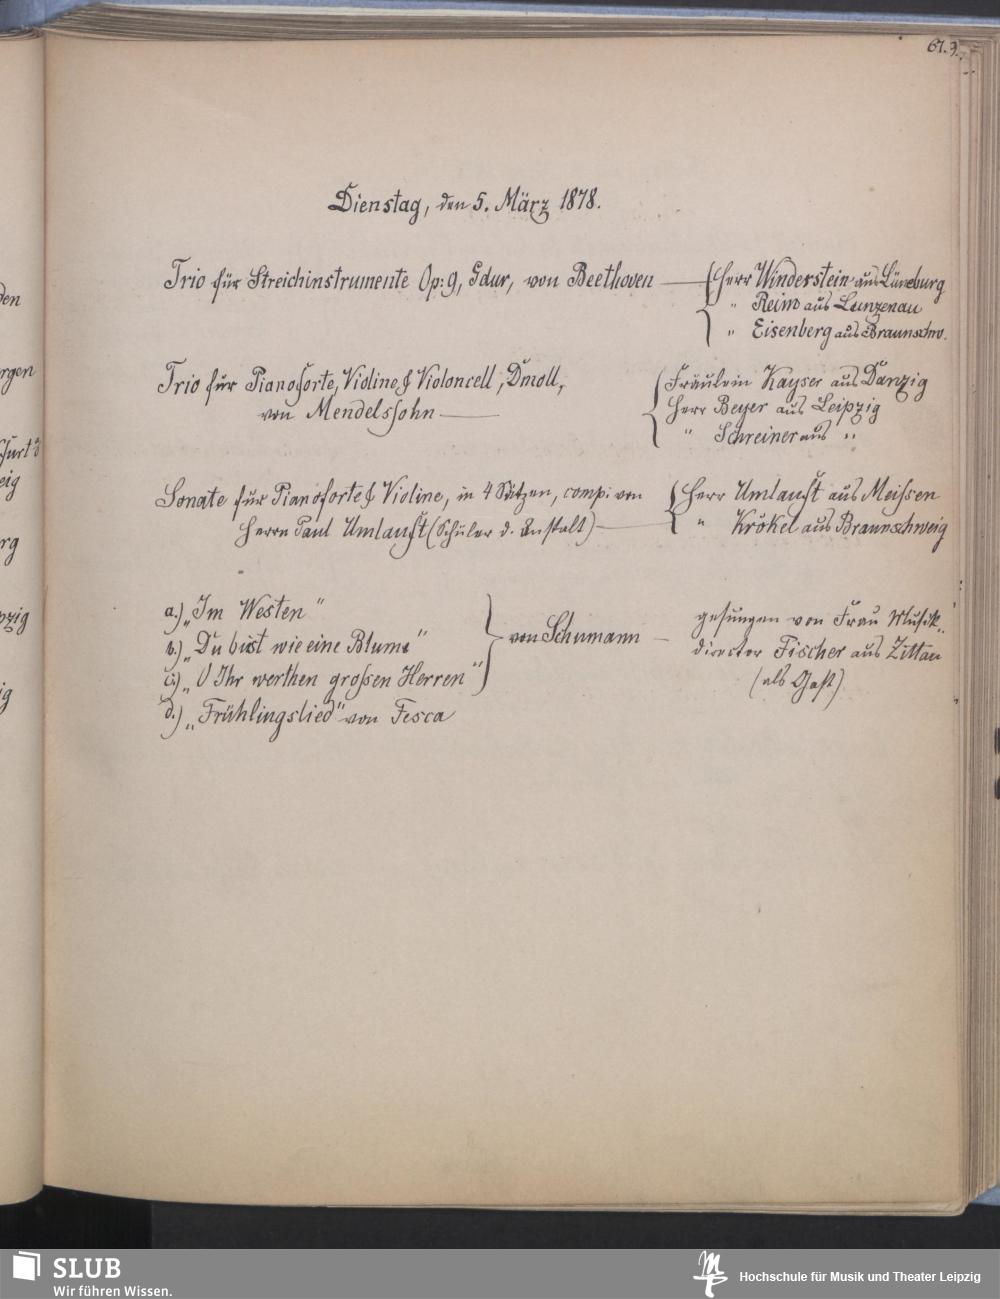 67.9.
Dienstag, den 5. März 1878.
Trio für Streichinstrumente Op: 9, Gdur, von Beethoven — Herr Winderstein aus Lüneburg
" Reim aus Lunzenau
" Eisenberg aus Braunschw.
Trio für Pianoforte, Violine & Violoncell, Dmoll,
von Mendelssohn —
Fräulein Kayser aus Danzig
Herr Beyer aus Leipzig
" Schreiner aus "
Sonate für Pianoforte & Violine, in 4 Sätzen, comp: von
Herrn Paul Umlauft (Schüler d. Anstalt) —
Herr Umlauft aus Meissen
" Krökel aus Braunschweig
a.) „Im Westen"
b.) „Du bist wie eine Blume"
c.) „O Ihr werthen grossen Herren"
von Schumann —
d.) „Frühlingslied" von Fesca
gesungen von Frau Musik-
director Fischer aus Zittau
(als Gast)
den
rgen
furt
eig
rg
pzig
ig
SLUB
Wir führen Wissen.
Hochschule für Musik und Theater Leipzig